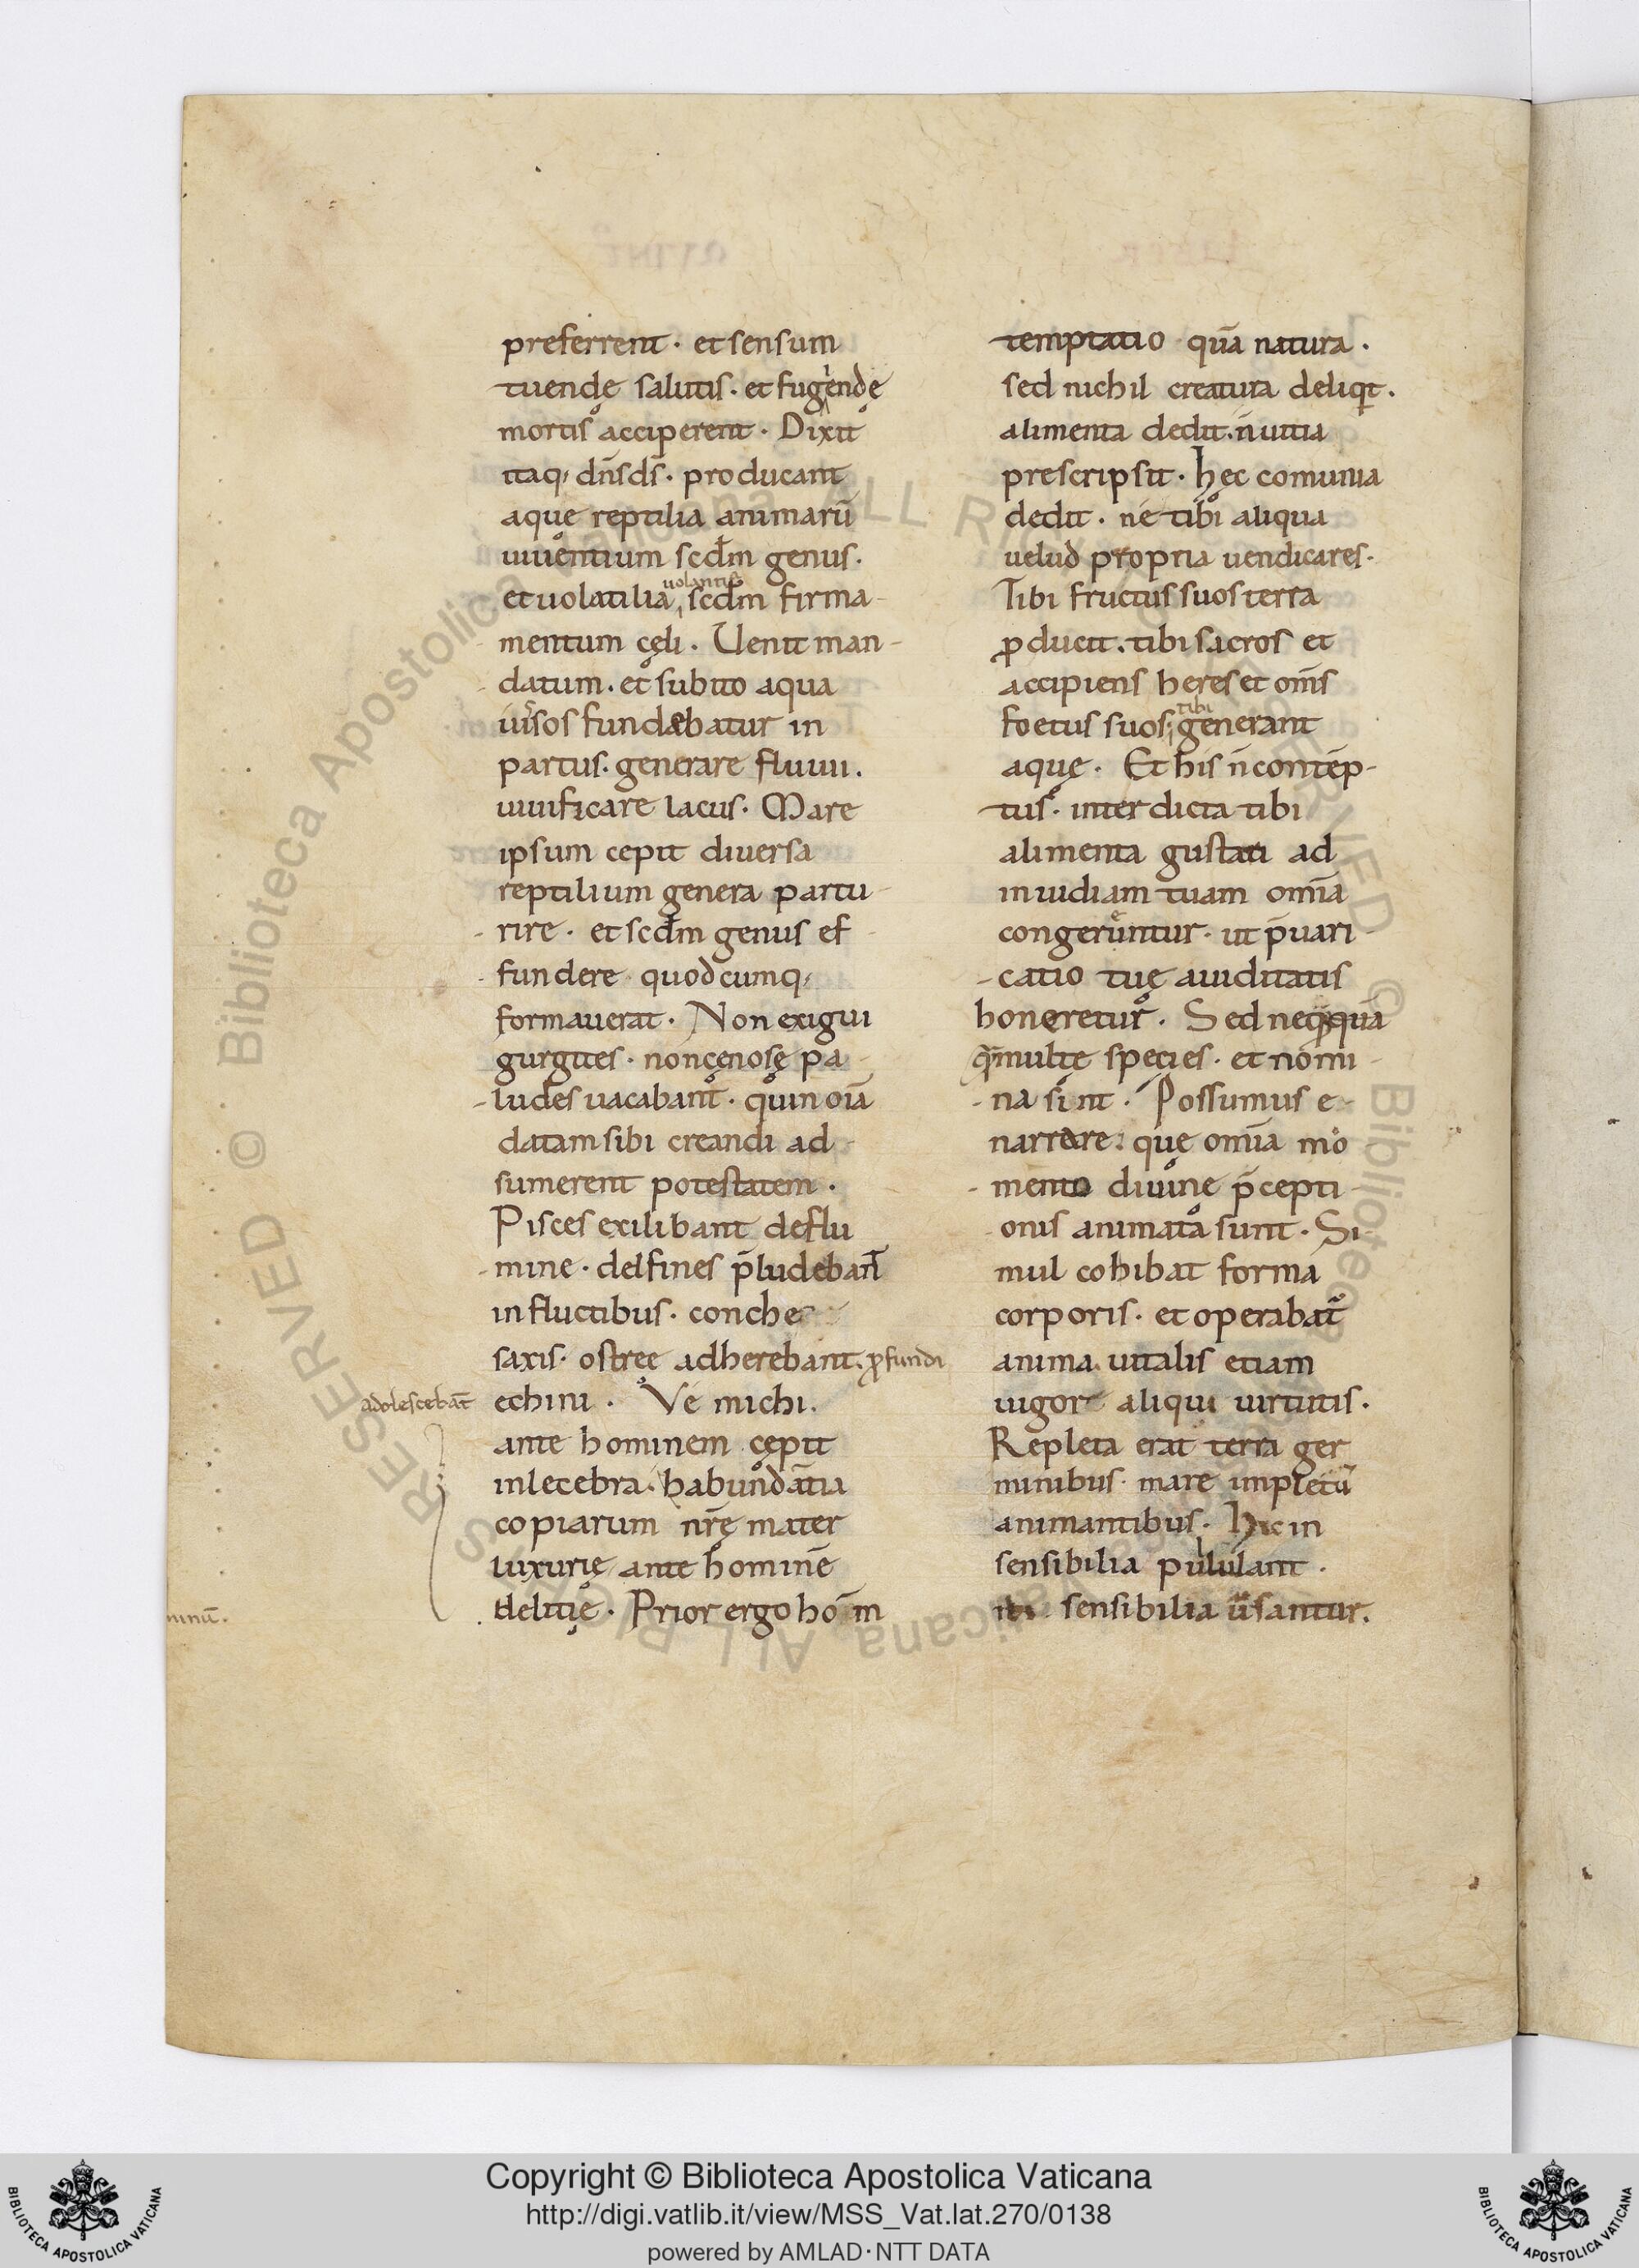 preferrent · et sensum
tuendę salutis · et fugiendę
mortis acciperent · Dixit
itaq; dn̄s ds̄ · producant
aquę reptilia animarū
uiuentium scd̄m genus ·
et uolatilia uolantia scd̄m firma-
mentum cęli · Uenit man-
datum · et subito aqua
iussos fundebatur in
partus · generare fluuii ·
uiuificare lacus · Mare
ipsum cepit diuersa
reptilium genera partu-
rire · et scd̄m genus ef-
fundere quodcumq;
formauerat · Non exigui
gurgites · non cęnosę pa-
ludes uacabant · quin oīa
datam sibi creandi ad-
sumerent potestatem ·
Pisces exilibant de flu
mine · delfines p̄ludebant̄
in fluctibus · conche
saxis · ostree adherebant · ꝓfundi
adolescebant̄ echini · Vé michi ·
ante hominem cępit
inlecebra · habundātia
copiarum nr̄ę mater
luxurię ante hominē
delitię · Prior ergo hōm
temptatio quā natura ·
sed nichil creatura deliqit ·
alimenta dedit · n̄ uitia
prescripsit · hęc comunia
dedit · né tibi aliqua
uelud propria uendicares ·
Tibi fructus suos terra
ꝓducit · tibi sacros et
accipiens heres et om̄s
foetus suos · tibi generant
aquę · Et his n̄ contēp-
tus · interdicta tibi
alimenta gustasti ad
inuidiam tuam om̄ia
congeruntur · ut p̄uari-
catio tuę auiditatis
honeretur · Sed neq̨quā
quā multę species · et nomi-
na sint · Possumus e-
narrare · quę om̄ia mo-
mento diuinę p̄cepti-
onis animata sunt · Si-
mul cohibat forma
corporis · et operabat̄
anima · uitalis etiam
uigor aliqui uirtutis ·
Repleta erat terra ger
minibus · mare impletū
animantibus · Hic in
sensibilia pululant ·
ibi sensibilia uersantur.
minū.
Copyright © Biblioteca Apostolica Vaticana
http://digi.vatlib.it/view/MSS_Vat.lat.270/0138
powered by AMLAD·NTT DATA
BIBLIOTECA APOSTOLICA VATICANA
BIBLIOTECA APOSTOLICA VATICANA